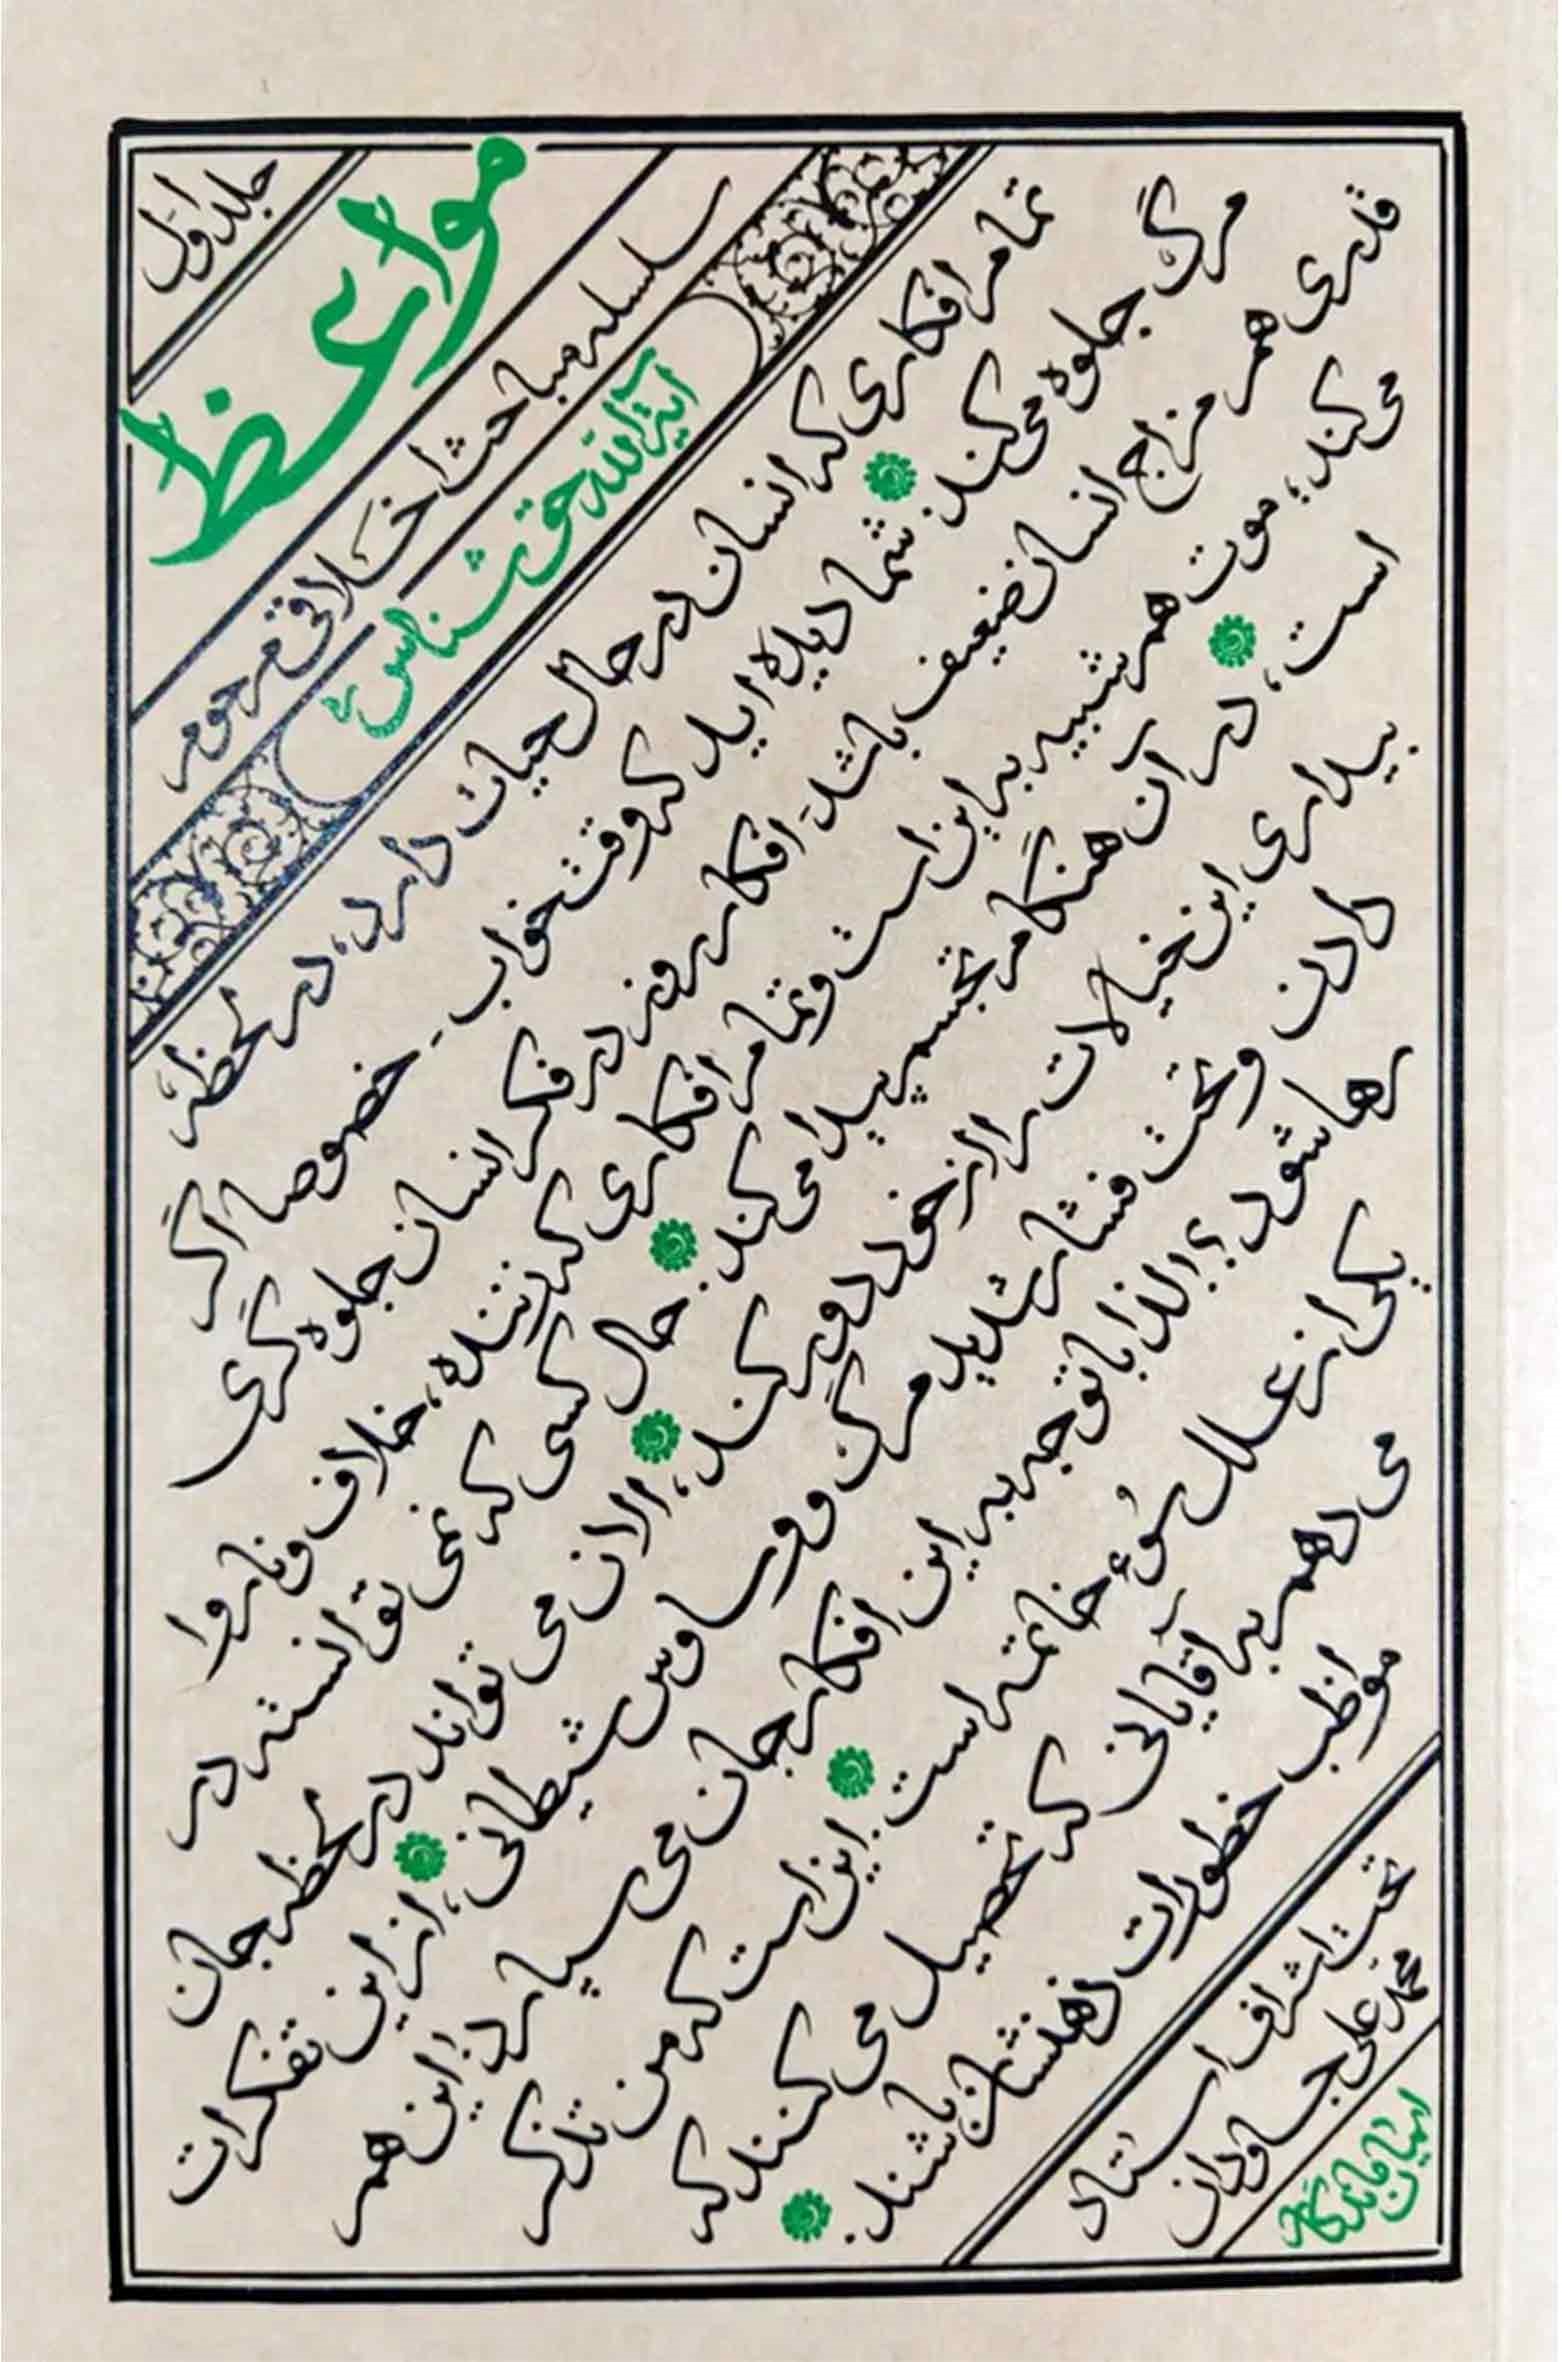 جلد اوّل
مواعظ
سلسله مباحث اخلاقی مرحوم
آیت الله حق شناس ره
تمام افکاری که انسان در حال حیات دارد، در لحظه
مرگ جلوه می کند. شما دیده اید که وقت خواب - خصوصا اگر
قدری هم مزاج انسان ضعیف باشد - افکار روز در فکر انسان جلوه گری
می کند؛ موت هم شبیه به این است و تمام افکاری که خلاف و ناروا
است، در آن هنگام تجسم پیدا می کند. حال کسی که نمی توانسته در
بیداری این خیالات را از خود دور کند، الان می تواند در لحظه جان
دادن و تحت فشار شدید مرگ و وساوس شیطانی، از این تفکرات
رها شود؟! لذا با توجه به این افکار جان می سپارد! این هم
یکی از علل سُوء خاتمه است. این است که من تذکر
می دهم به آقایانی که تحصیل می کنند که
مواظب خطورات ذهنشان باشند.
تحت اشراف استاد
محمدعلی جاودان
ایمان ماندگار